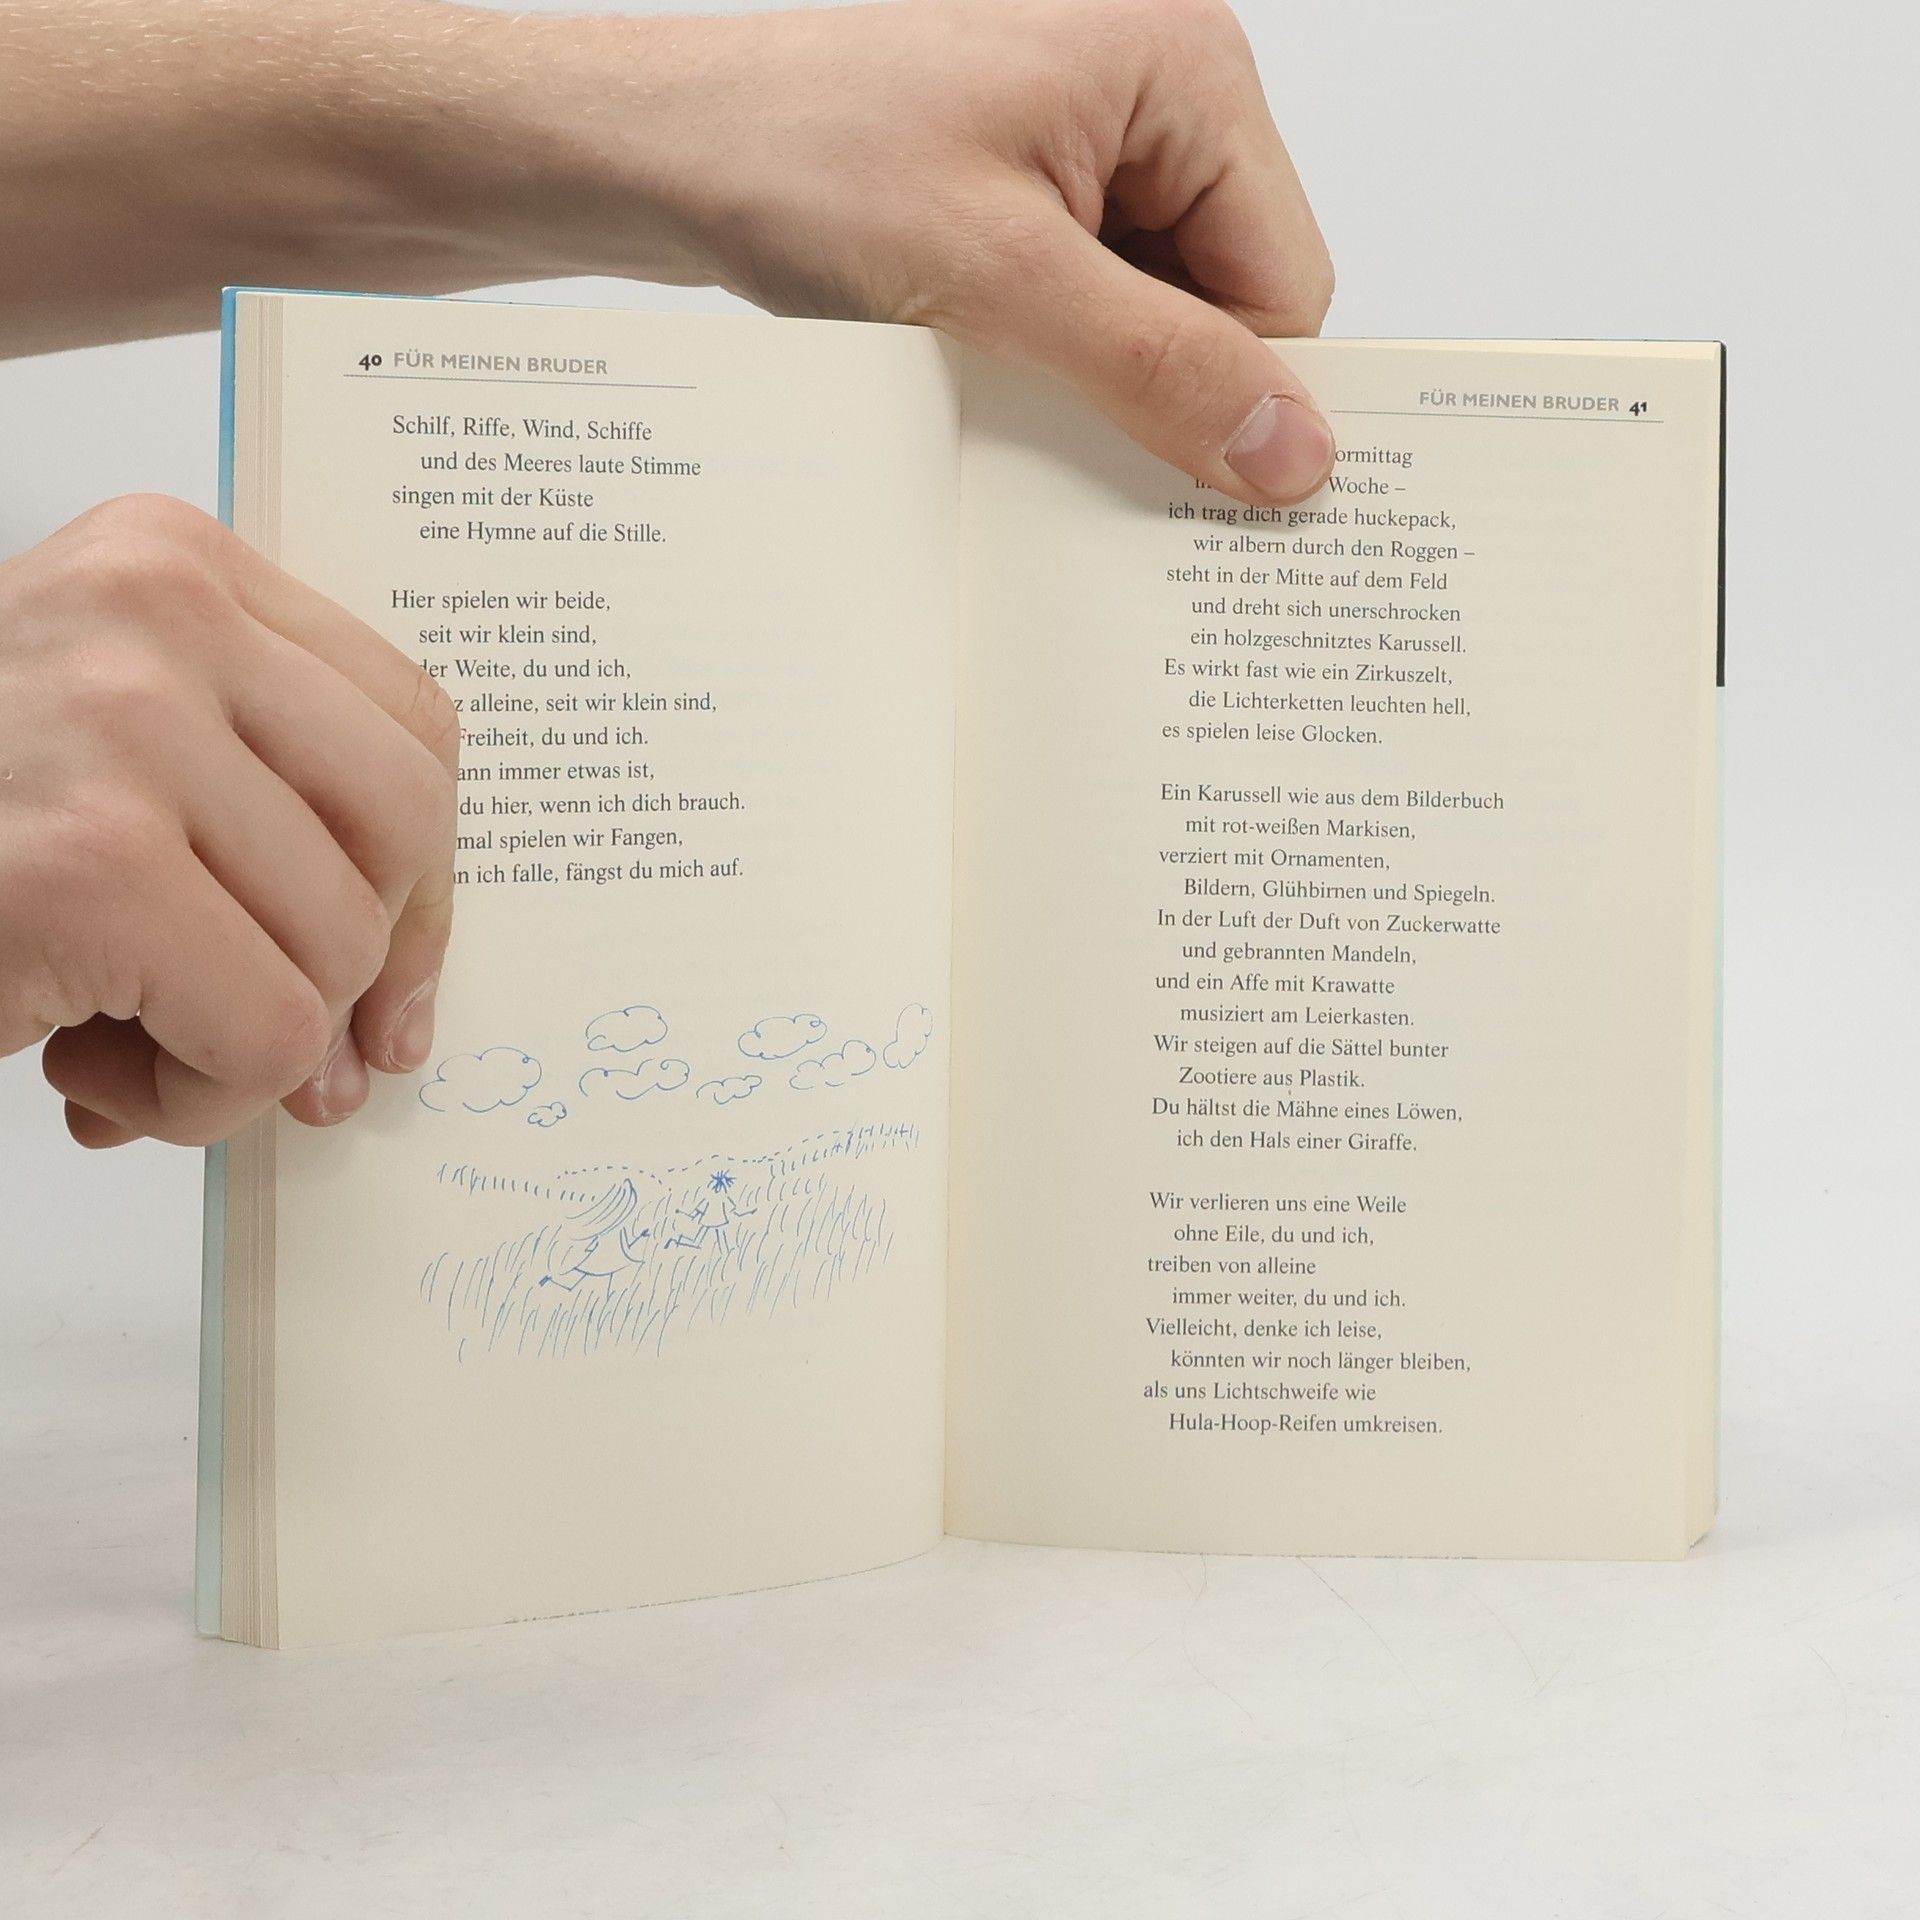 40 FÜR MEINEN BRUDER
Schilf, Riffe, Wind, Schiffe
und des Meeres laute Stimme
singen mit der Küste
eine Hymne auf die Stille.
Hier spielen wir beide,
seit wir klein sind,
der Weite, du und ich,
alleine, seit wir klein sind,
Freiheit, du und ich.
immer etwas ist,
du hier, wenn ich dich brauch.
spielen wir Fangen,
ich falle, fängst du mich auf.
FÜR MEINEN BRUDER 41
Woche –
ich trag dich gerade huckepack,
wir albern durch den Roggen –
steht in der Mitte auf dem Feld
und dreht sich unerschrocken
ein holzgeschnitztes Karussell.
Es wirkt fast wie ein Zirkuszelt,
die Lichterketten leuchten hell,
es spielen leise Glocken.
Ein Karussell wie aus dem Bilderbuch
mit rot-weißen Markisen,
verziert mit Ornamenten,
Bildern, Glühbirnen und Spiegeln.
In der Luft der Duft von Zuckerwatte
und gebrannten Mandeln,
und ein Affe mit Krawatte
musiziert am Leierkasten.
Wir steigen auf die Sättel bunter
Zootiere aus Plastik.
Du hältst die Mähne eines Löwen,
ich den Hals einer Giraffe.
Wir verlieren uns eine Weile
ohne Eile, du und ich,
treiben von alleine
immer weiter, du und ich.
Vielleicht, denke ich leise,
könnten wir noch länger bleiben,
als uns Lichtschweife wie
Hula-Hoop-Reifen umkreisen.